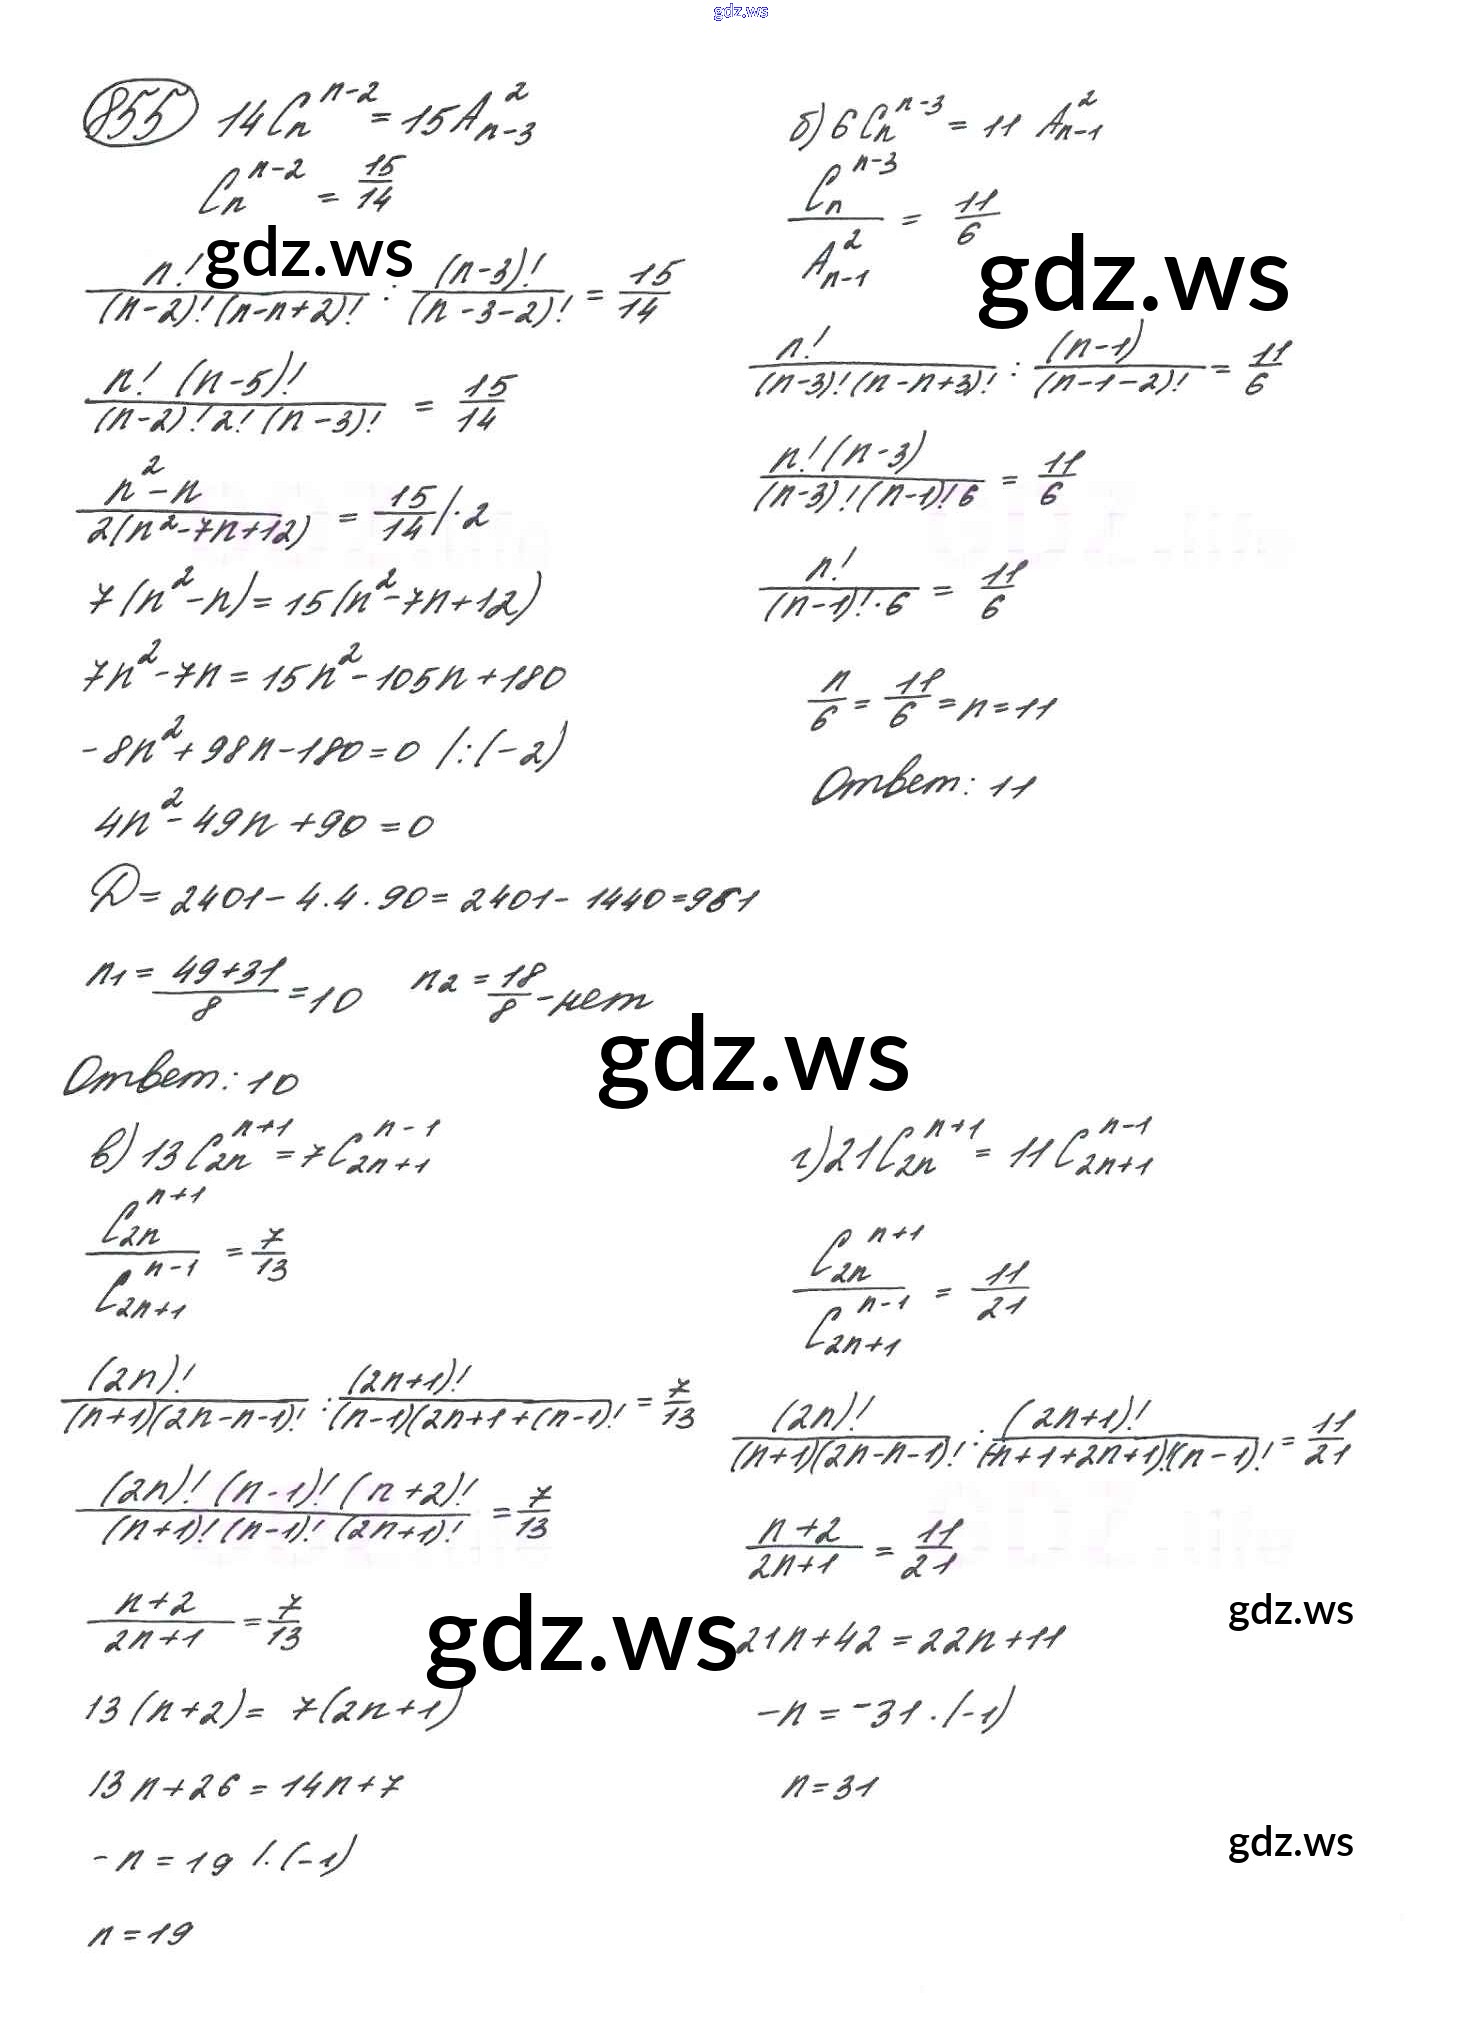 gdz.ws
855 14C_n^{n-2} = 15A_{n-3}^2
C_n^{n-2} = 15/14
gdz.ws
n!/((n-2)!(n-n+2)!) : (n-3)!/(n-3-2)! = 15/14
n!(n-5)!/((n-2)!2!(n-3)!) = 15/14
(n^2-n)/(2(n^2-7n+12)) = 15/14 |·2
7(n^2-n) = 15(n^2-7n+12)
7n^2-7n = 15n^2-105n+180
-8n^2+98n-180=0 |:(-2)
4n^2-49n+90=0
D = 2401-4·4·90 = 2401-1440 = 961
n_1 = (49+31)/8 = 10 n_2 = 18/8 - нет
Ответ: 10
б) 6C_n^{n-3} = 11 A_{n-1}^2
C_n^{n-3}/A_{n-1}^2 = 11/6
gdz.ws
n!/((n-3)!(n-n+3)!) : (n-1)/(n-1-2)! = 11/6
n!(n-3)/((n-3)!(n-1)!6) = 11/6
n!/((n-1)!·6) = 11/6
n/6 = 11/6 = n=11
Ответ: 11
gdz.ws
в) 13C_{2n}^{n+1} = 7C_{2n+1}^{n-1}
C_{2n}^{n+1}/C_{2n+1}^{n-1} = 7/13
(2n)!/((n+1)(2n-n-1)! : (2n+1)!/((n-1)(2n+1+(n-1)! = 7/13
(2n)!(n-1)!(n+2)!/((n+1)!(n-1)!(2n+1)!) = 7/13
(n+2)/(2n+1) = 7/13
gdz.ws
13(n+2) = 7(2n+1)
13n+26 = 14n+7
-n = 19 |·(-1)
n=19
г) 21C_{2n}^{n+1} = 11C_{2n+1}^{n-1}
C_{2n}^{n+1}/C_{2n+1}^{n-1} = 11/21
(2n)!/((n+1)(2n-n-1)! : (2n+1)!/((-n+1+2n+1)!(n-1)! = 11/21
(n+2)/(2n+1) = 11/21
gdz.ws
21n+42 = 22n+11
-n = -31·(-1)
n=31
gdz.ws